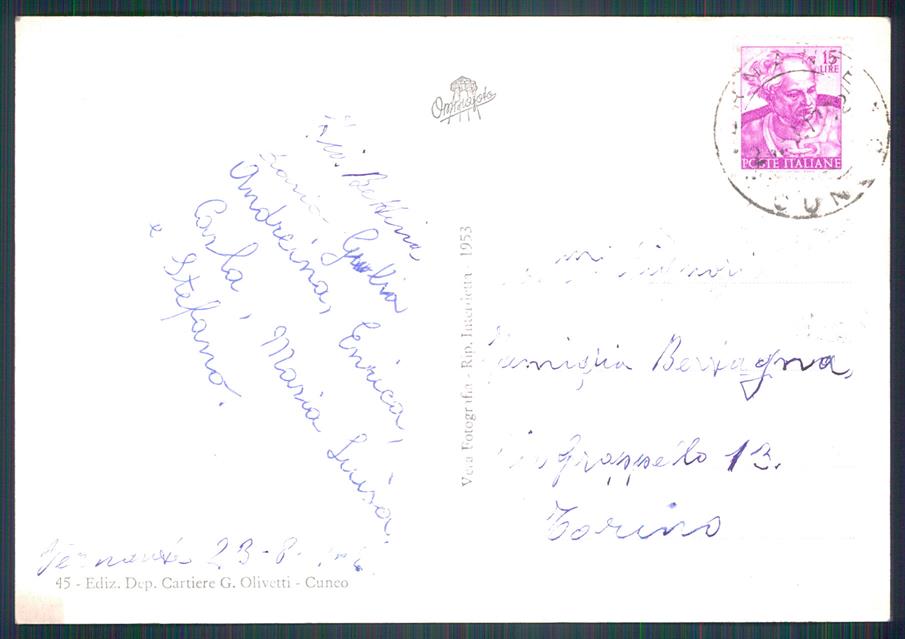 Zia Bettina,
Zania Giulia
Andreina, Enrica,
Carla, Maria Luisa,
e Stefano.
Vernante 23-8-
45 - Ediz. Dep. Cartiere G. Olivetti - Cuneo
Vera Fotografia - Rip. Interdetta - 1953
15
LIRE
POSTE ITALIANE
Signori
Famiglia Bertagna,
Via Grappelo 13.
Torino